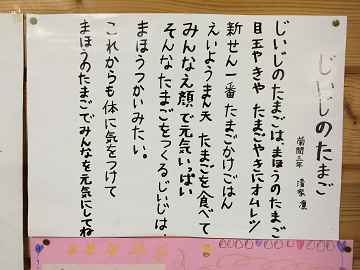 じぃじのたまご
菊間三年
じぃじのたまごは、まほうのたまご
目玉やきや たまごやきにオムレツ
新せん一番 たまごかけごはん
えいようまん天 たまごを食べて
みんなえ顔で元気いっぱい
そんなたまごをつくる、じぃじは、
まほうつかいみたい。
これからも体に気をつけて
まほうのたまごでみんなを元気にしてね